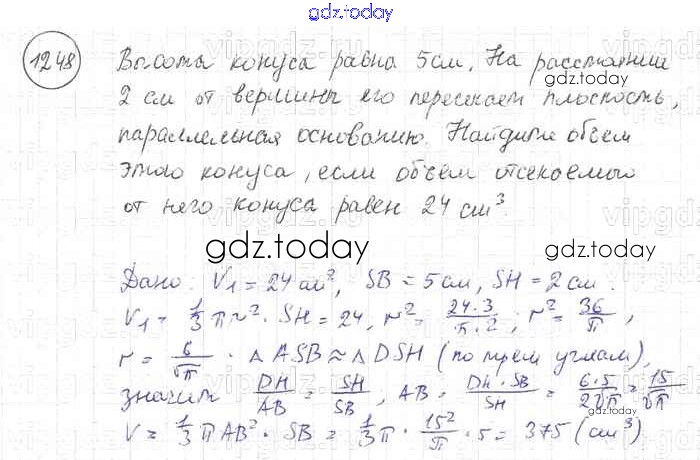 gdz.today
1248 Высота конуса равна 5 см. На расстоянии
gdz.today
2 см от вершины его пересекает плоскость,
параллельная основанию. Найдите объем
этого конуса, если объем отсекаемого
от него конуса равен 24 см³.
gdz.today gdz.today
Дано: V₁ = 24 см², SB = 5 см, SH = 2 см.
V₁ = 1/3 πr² · SH = 24, r² = 24·3/π·2, r² = 36/π,
r = 6/√π · △ASB ≈ △DSH (по трем углам),
значит DH/AB = SH/SB, AB = DH·SB/SH = 6·5/2√π = 15/√π
V = 1/3 πAB² · SB = 1/3 π · 15²/π · 5 = 375 (см³)
gdz.today gdz.today
gdz.today